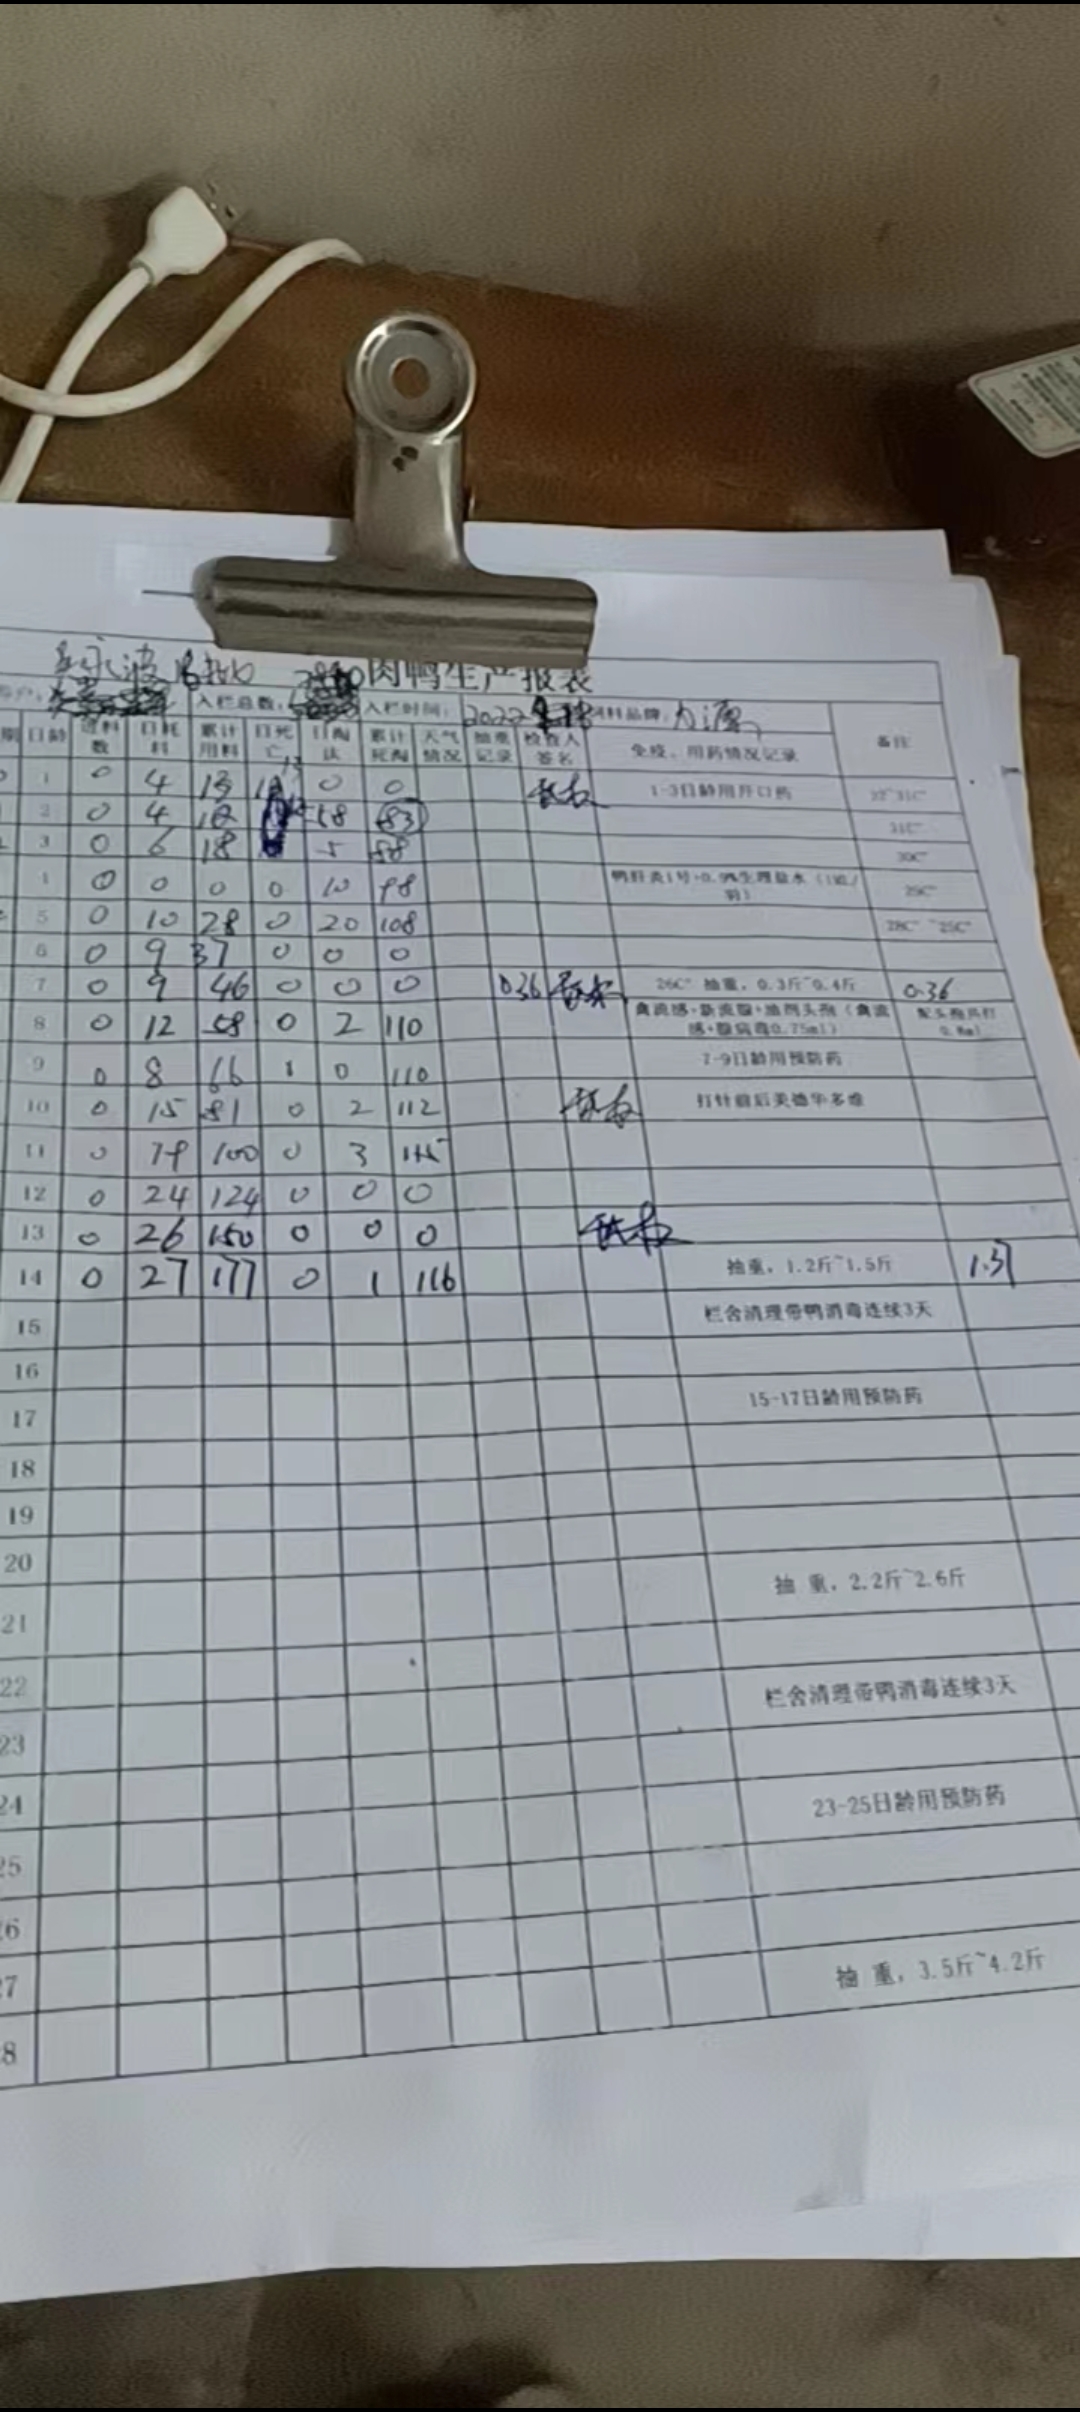 肉鸭生产报表
入栏总数: 入栏时间: 2022 饲料品牌: 力源
日龄 进料数 日耗料 累计用料 日死亡 日淘汰 累计死淘 天气情况 抽重记录 检查人签名 免疫、用药情况记录 备注
1 0 4 13 0 0 1-3日龄用开口药
2 0 4 12 58 83 31C°
3 0 6 18 5 88 30C°
0 0 0 0 10 98 鸭肝炎1号+0.9%生理盐水
5 0 10 28 0 20 108 28C°~25C°
6 0 9 37 0 0 0
7 0 9 46 0 0 0 0.36 26C° 抽重，0.3斤~0.4斤 0.36
8 0 12 58 0 2 110 禽流感+新流腺+油剂头孢（禽流感+腺病毒0.75ml） 0.8ml
9 0 8 66 1 0 110 7-9日龄用预防药
10 0 15 81 0 2 112 打针前后
11 0 19 100 0 3 115
12 0 24 124 0 0 0
13 0 26 150 0 0 0
14 0 27 177 0 1 116 抽重，1.2斤~1.5斤 1.37
15 栏舍清理带鸭消毒连续3天
16
17 15-17日龄用预防药
18
19
20
21 抽 重，2.2斤~2.6斤
22
23 栏舍清理带鸭消毒连续3天
24
25 23-25日龄用预防药
26
27
28 抽 重，3.5斤~4.2斤